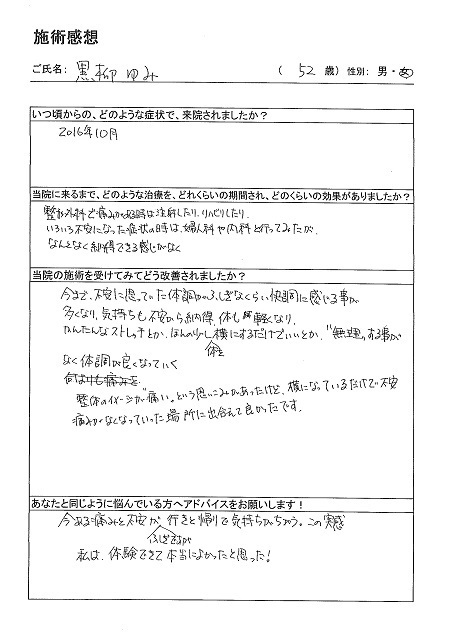 施術感想
ご氏名: 黒柳ゆみ ( 52 歳) 性別: 男・女
いつ頃からの、どのような症状で、来院されましたか?
2016年10月
当院に来るまで、どのような治療を、どれくらいの期間され、どのくらいの効果がありましたか?
整形外科で痛みがある時は注射したり、リハビリしたり、
いろいろ不安になった症状の時は、婦人科や内科と行ってみたが、
なんとなく納得できる感じがなく
当院の施術を受けてみてどう改善されましたか?
今まで、不安に思っていた体調がふしぎなくらい快調に感じる事が
多くなり、気持ちも不安から納得、体も軽くなり、
かんたんなストレッチとか、ほんの少し横にするだけでいいとか、"無理"する事が
体を
なく体調が良くなっていく
何よりも痛みを
整体のイメージが"痛い"という思いこみがあったけど、横になっているだけで不安
痛みがなくなっていった場所に出会えて良かったです。
あなたと同じように悩んでいる方へアドバイスをお願いします!
今ある痛みと不安が、行きと帰りで気持ちがちがう。この実感
ふしぎ
私は、体験できて本当によかったと思った!